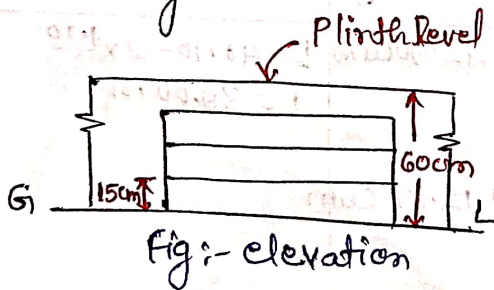 Plinth Level
60cm
15cm
G L
Fig:- elevation